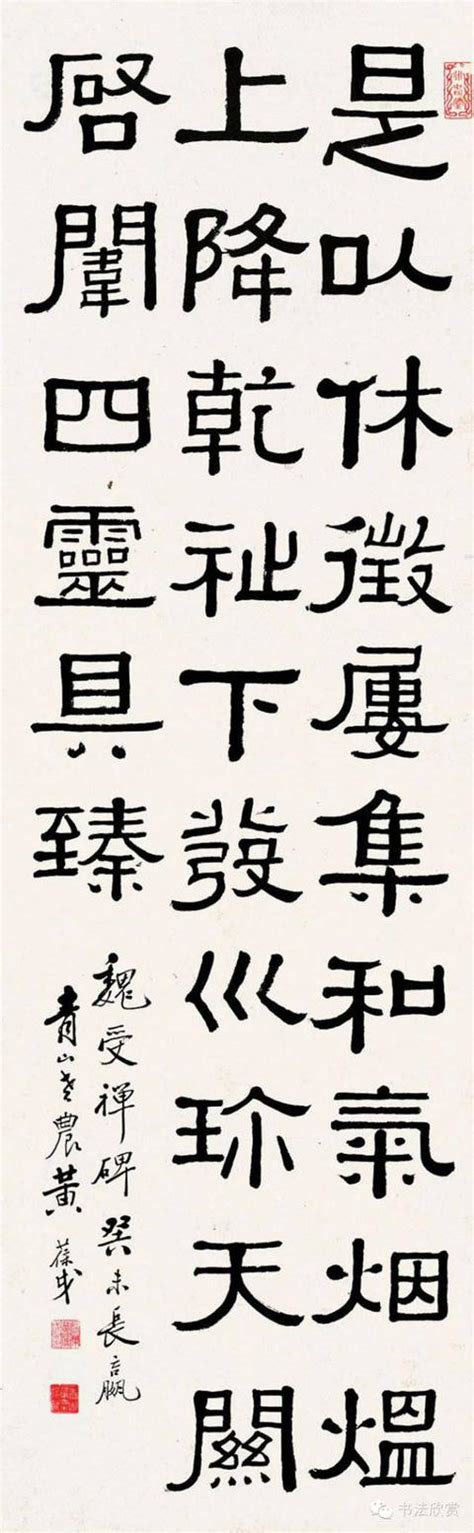 是以休徵屢集和氣烟熅
上降乾祉下發巛珎天關
啓闈四靈具臻
魏受禪碑癸未長嬴
青山老農黃葆戉
书法欣赏